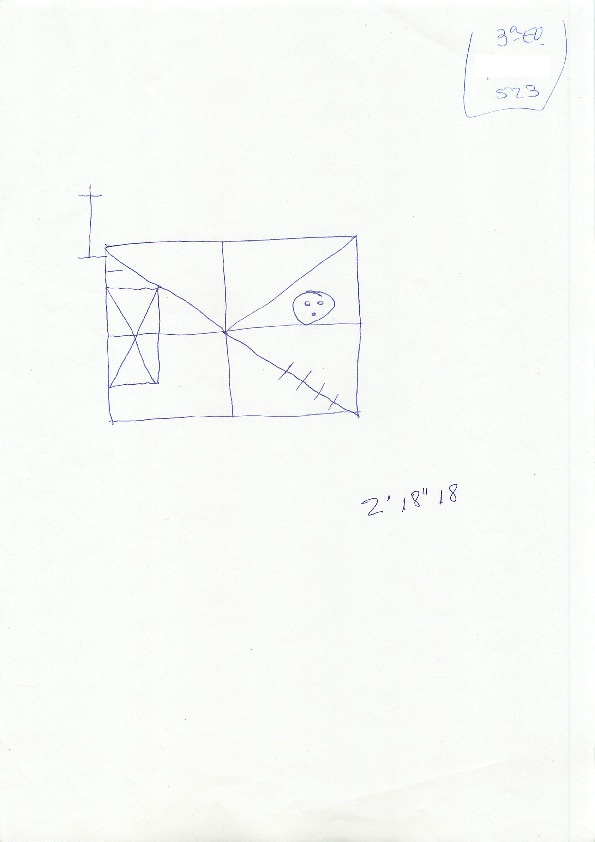 3ª EV.
523
2' 18" 18